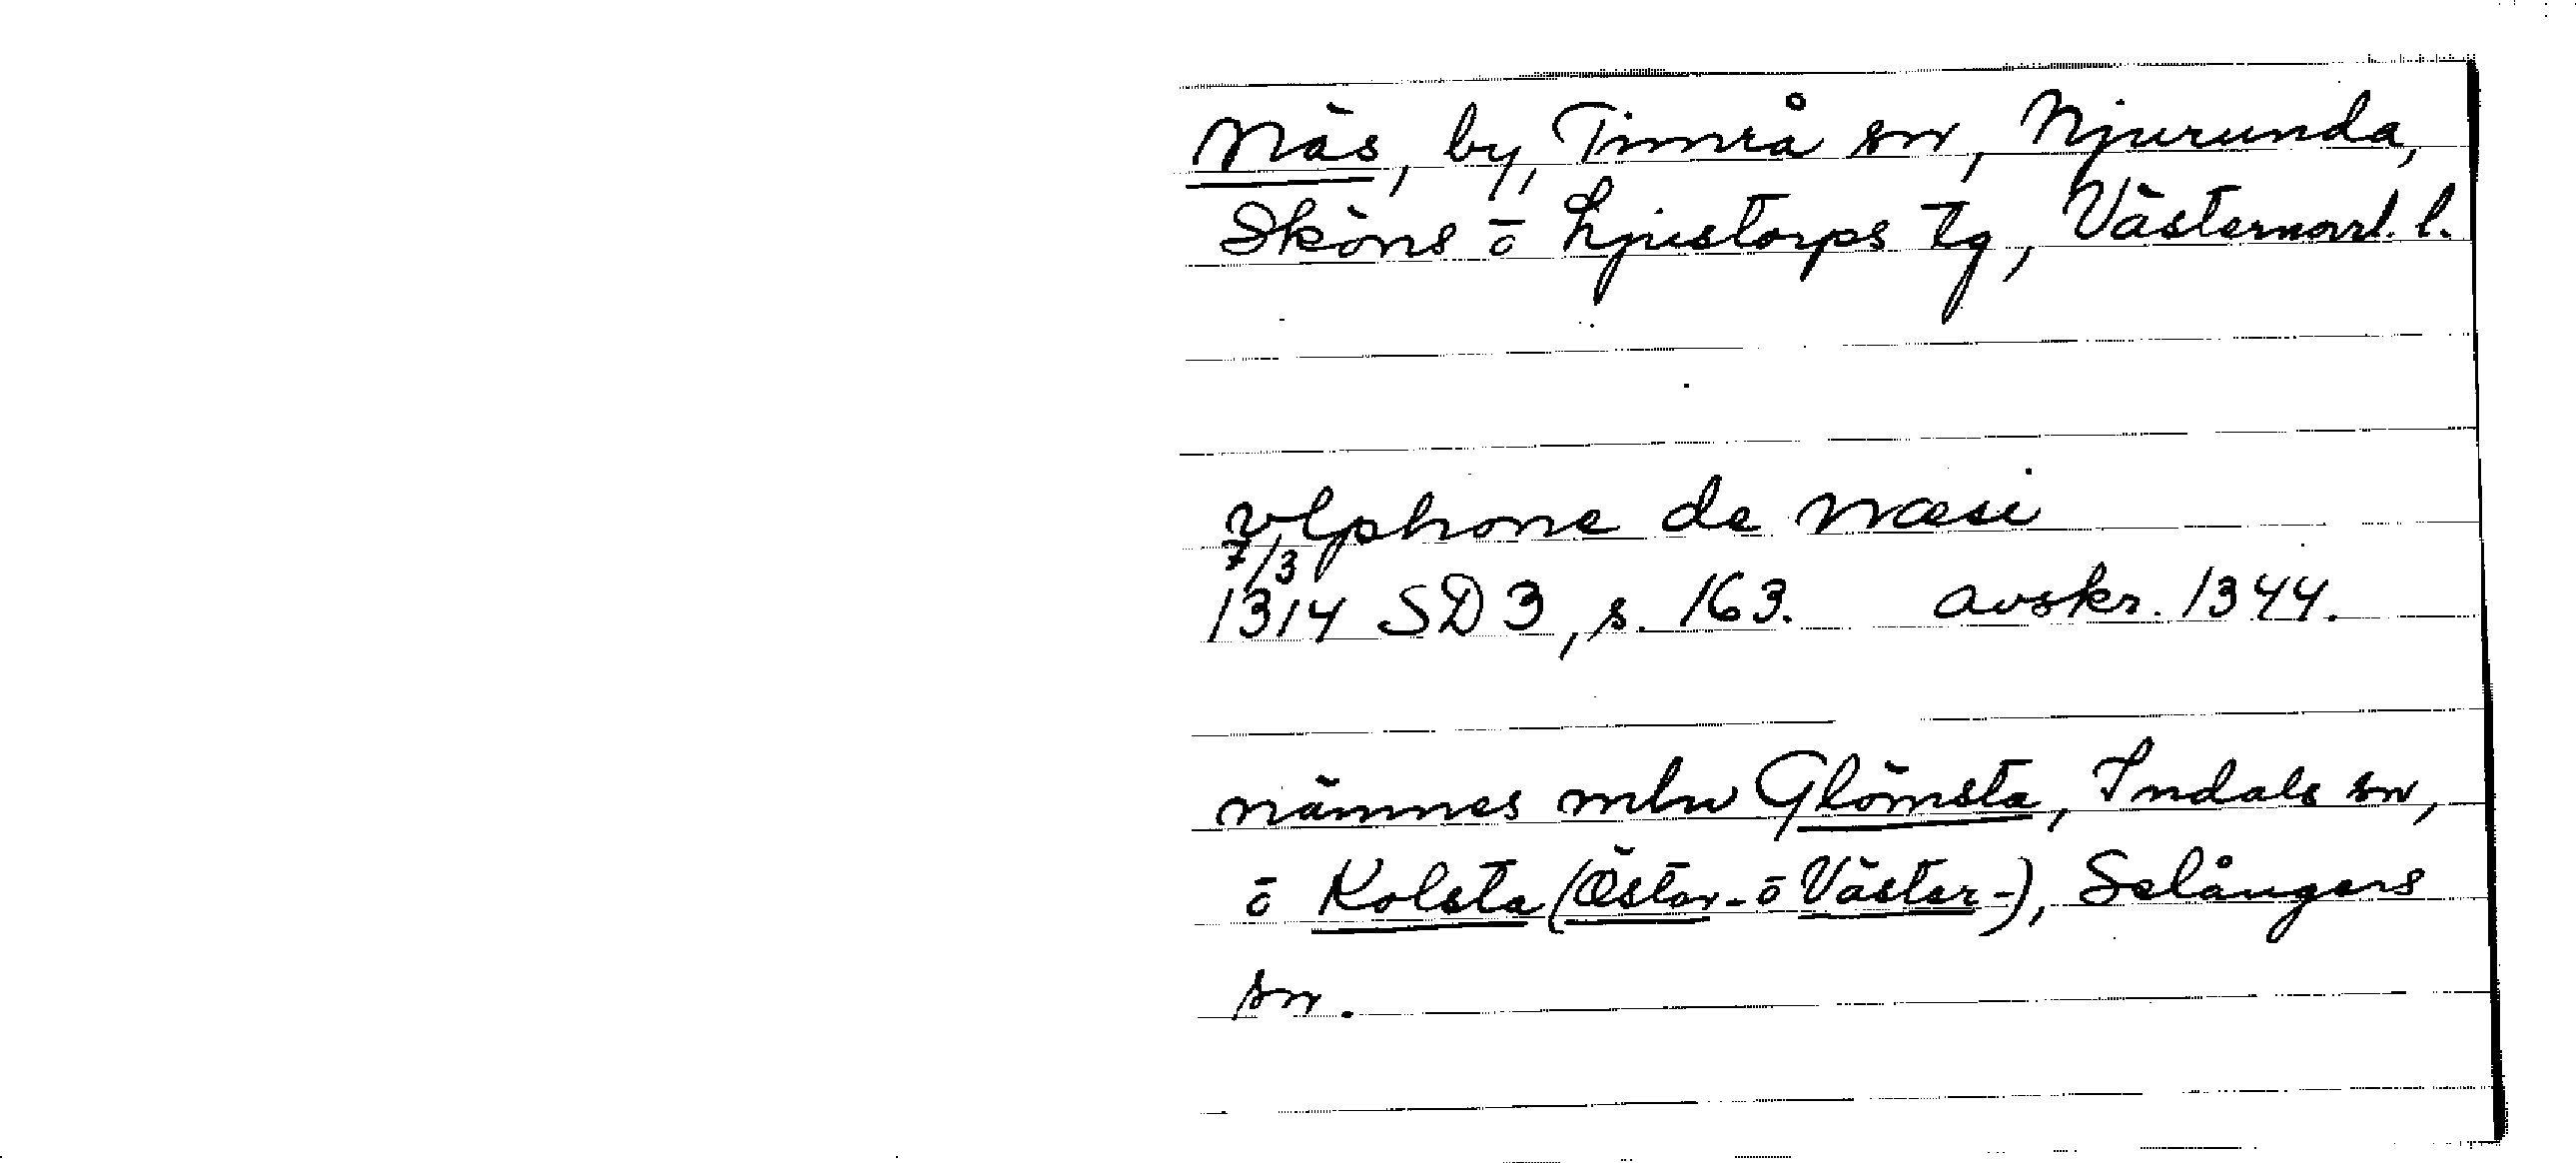 Näs, by, Timrå sn, Njurunda,
Sköns ō Ljustorps tg, Västernorrl. l.
vlphone de næsi
7/3
1314 SD 3, s. 163. avskr. 1344.
nämnes mln Glömsta, Indals sn,
ō Kolsta (Öster- ō Väster-), Selångers
sn.